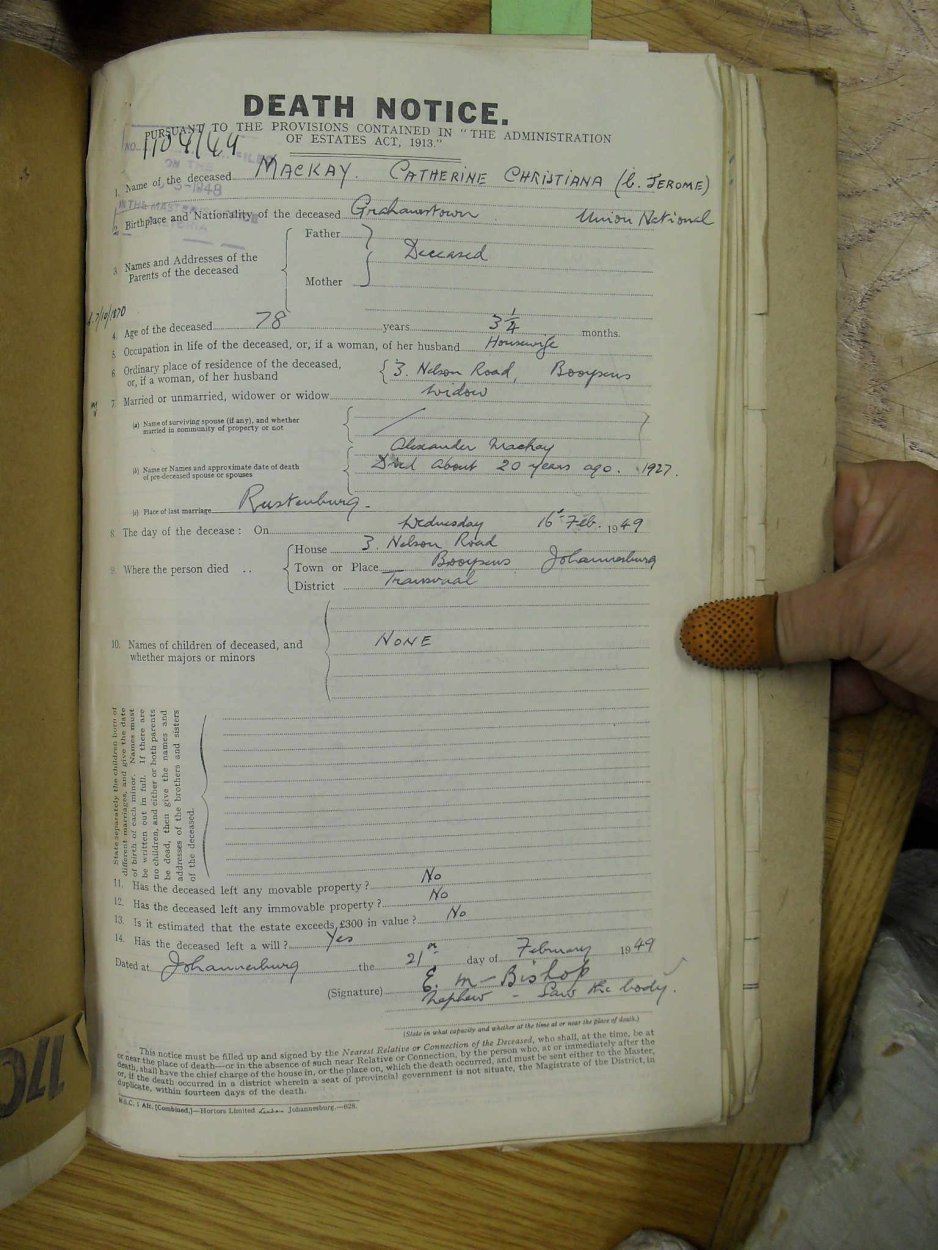 DEATH NOTICE.
PURSUANT TO THE PROVISIONS CONTAINED IN "THE ADMINISTRATION
OF ESTATES ACT, 1913."
NO. 1104/49
1. Name of the deceased MACKAY. CATHERINE CHRISTIANA (b. JEROME)
2. Birthplace and Nationality of the deceased Grahamstown. Union National
3. Names and Addresses of the Parents of the deceased
Father
Deceased
Mother
7/10/1870
4. Age of the deceased 78 years 3¼ months.
5. Occupation in life of the deceased, or, if a woman, of her husband Housewife
6. Ordinary place of residence of the deceased, or, if a woman, of her husband 3. Nelson Road, Booysens
7. Married or unmarried, widower or widow Widow
(a) Name of surviving spouse (if any), and whether married in community of property or not
(b) Name or Names and approximate date of death of pre-deceased spouse or spouses
Alexander Mackay
Died about 20 years ago. 1927.
(c) Place of last marriage Rustenburg.
8. The day of the decease: On Wednesday 16th Feb. 1949
9. Where the person died ..
House 3. Nelson Road
Town or Place Booysens Johannesburg
District Transvaal
10. Names of children of deceased, and whether majors or minors
NONE
State separately the children born of
different marriages, and give the date
of birth of each minor. Names must
be written out in full. If there are
no children, and either or both parents
be dead, then give the names and
addresses of the brothers and sisters
of the deceased.
11. Has the deceased left any movable property? No
12. Has the deceased left any immovable property? No
13. Is it estimated that the estate exceeds £300 in value? No
14. Has the deceased left a will? Yes
Dated at Johannesburg the 21st day of February 1949
(Signature) E. M. Bishop
nephew - Saw the body.
(State in what capacity and whether at the time at or near the place of death.)
This notice must be filled up and signed by the Nearest Relative or Connection of the Deceased, who shall, at the time, be at
or near the place of death—or in the absence of such near Relative or Connection, by the person who, at or immediately after the
death, shall have the chief charge of the house in, or the place on, which the death occurred, and must be sent either to the Master,
or, if the death occurred in a district wherein a seat of provincial government is not situate, the Magistrate of the District, in
duplicate, within fourteen days of the death.
Hortors Limited Johannesburg.—628.